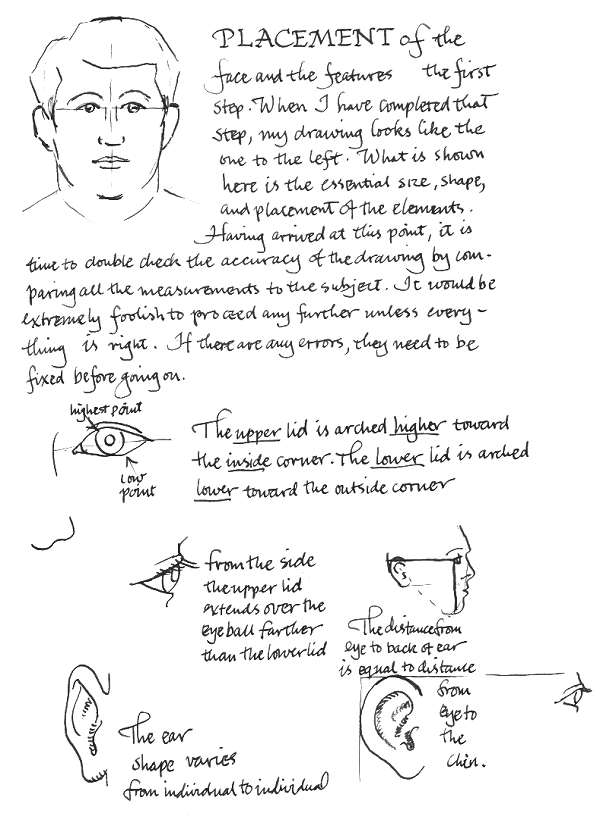 PLACEMENT of the
face and the features the first
step. When I have completed that
step, my drawing looks like the
one to the left. What is shown
here is the essential size, shape,
and placement of the elements.
Having arrived at this point, it is
time to double check the accuracy of the drawing by com-
paring all the measurements to the subject. It would be
extremely foolish to proceed any further unless every-
thing is right. If there are any errors, they need to be
fixed before going on.
highest point
The upper lid is arched higher toward
the inside corner. The lower lid is arched
lower toward the outside corner
low
point
from the side
the upper lid
extends over the
eyeball farther
than the lower lid
The distance from
eye to back of ear
is equal to distance
from
eye to
the
chin.
The ear
shape varies
from individual to individual